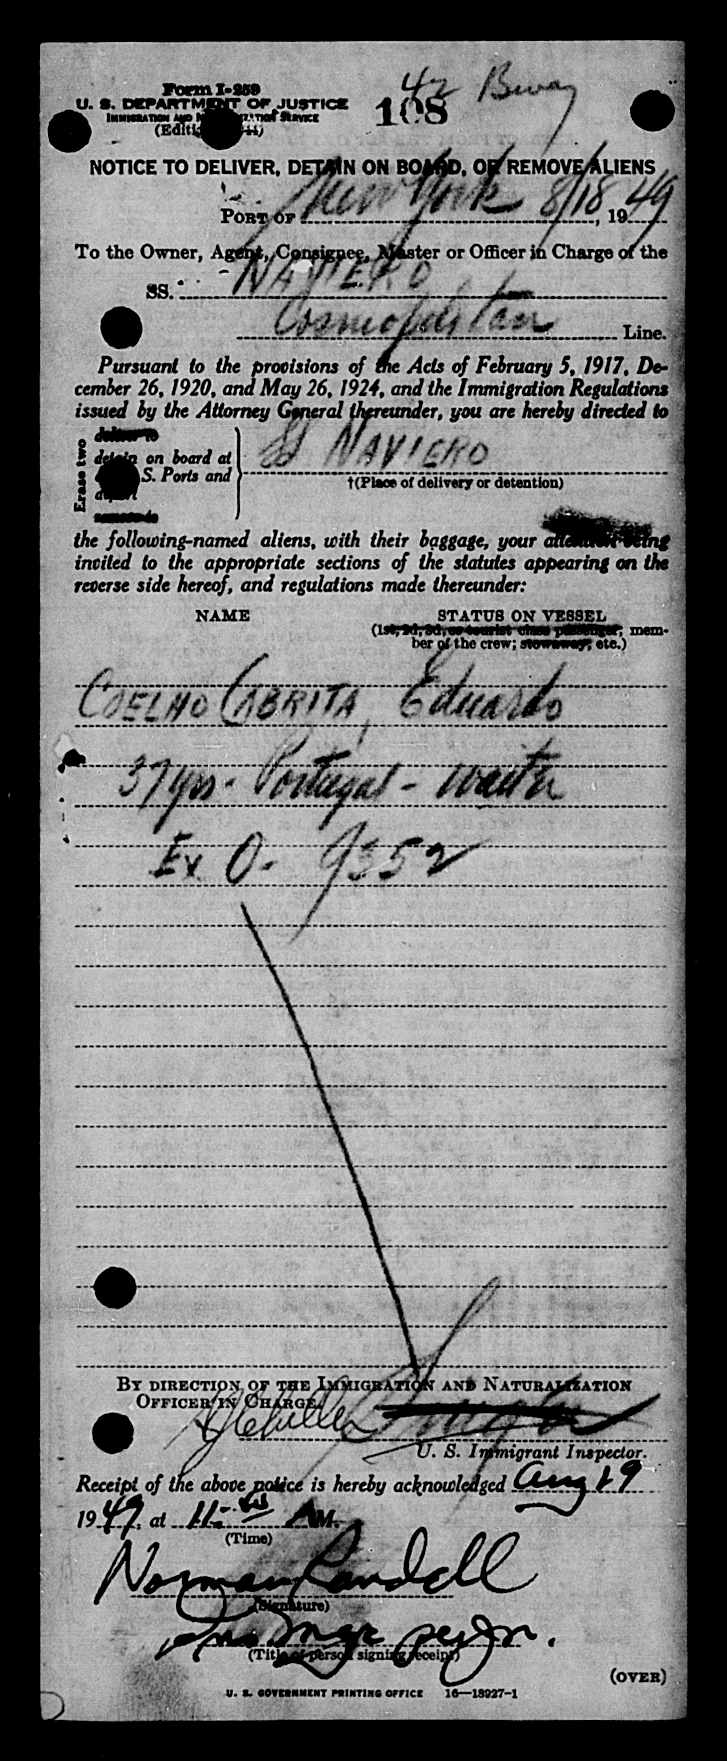 42 Bway
Form I-259
U. S. DEPARTMENT OF JUSTICE
108
IMMIGRATION AND NATURALIZATION SERVICE
NOTICE TO DELIVER, DETAIN ON BOARD, OR REMOVE ALIENS
PORT OF New York 8/18, 1949
To the Owner, Agent, Consignee, Master or Officer in Charge of the
SS. NAVIERO
Cosmopolitan Line.
Pursuant to the provisions of the Acts of February 5, 1917, De-
cember 26, 1920, and May 26, 1924, and the Immigration Regulations
issued by the Attorney General thereunder, you are hereby directed to
Erase two
deliver to
detain on board at
S. Ports and
deport
remove to
SS NAVIERO
†(Place of delivery or detention)
the following-named aliens, with their baggage, your attention being
invited to the appropriate sections of the statutes appearing on the
reverse side hereof, and regulations made thereunder:
NAME STATUS ON VESSEL
(1st, 2d, 3d, or tourist class passenger; mem-
ber of the crew; stowaway; etc.)
COELHO CABRITA, Eduardo
37 yrs - Portugal - waiter
Ex O. 9352
BY DIRECTION OF THE IMMIGRATION AND NATURALIZATION
OFFICER IN CHARGE.
U. S. Immigrant Inspector.
Receipt of the above notice is hereby acknowledged Aug 19
1949, at 11: AM.
(Time)
Norman Randell
(Signature)
(Title of person signing receipt)
(OVER)
U. S. GOVERNMENT PRINTING OFFICE 16—18927-1